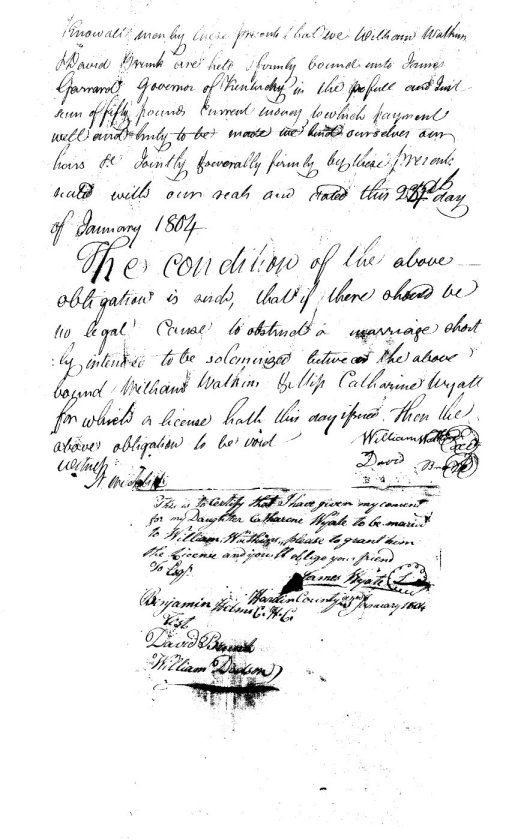 Know all men by these presents that we William Watkins
& David Brunk are held & firmly bound unto James
Garrard Governor of Kentucky in the full and Just
sum of fifty pounds Current money to which payment
well and truly to be made we bind ourselves our
heirs &c Jointly & severally firmly by these presents
sealed with our seals and dated this day
of January 1804
The condition of the above
obligation is such, that if there should be
no legal Cause to obstruct a marriage short
ly intended to be solemnized between the above
bound William Watkins & Miss Catharine Wyatt
for which a license hath this day issued then the
above obligation to be void
William Watkins
witness David
This is to certify that I have given my consent
for my Daughter Catharene Wyatt to be maried
to William Watkins, please to grant him
the License and you'll oblige your friend
To Esqr. James Wyatt
Hardin County January 1804
Benjamin Helm C.H.C
Test
David Brunk
William Dodson